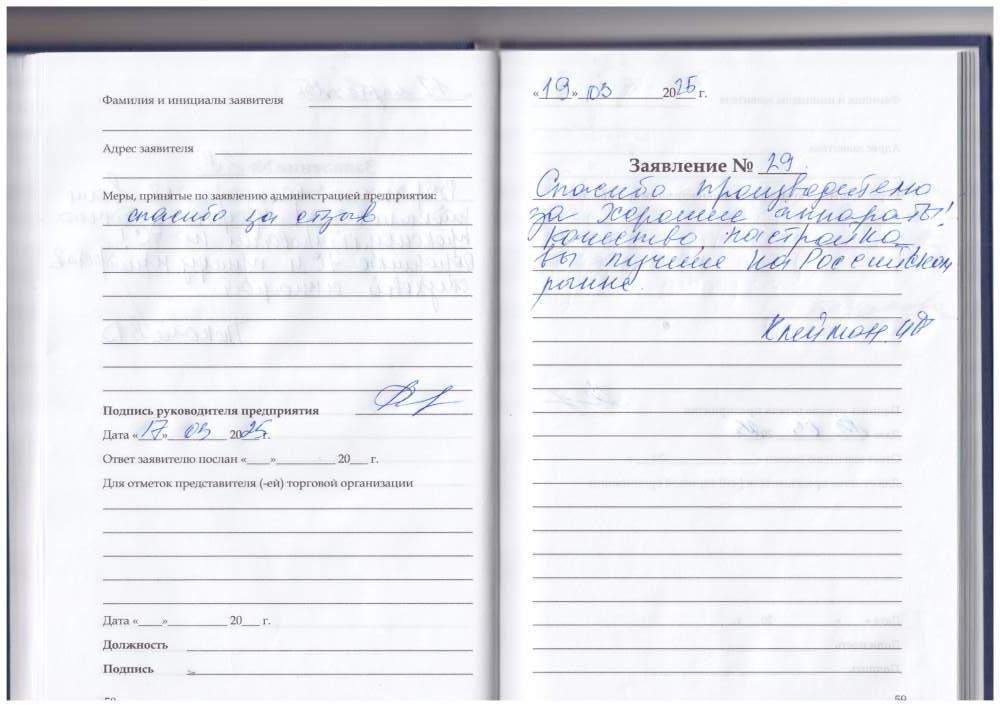 Фамилия и инициалы заявителя
Адрес заявителя
Меры, принятые по заявлению администрацией предприятия:
спасибо за отзыв
Подпись руководителя предприятия
Дата «17» 03 2025г.
Ответ заявителю послан «___»__________ 20___ г.
Для отметок представителя (-ей) торговой организации
Дата «____»__________ 20___ г.
Должность
Подпись
«19» 03 2025 г.
Заявление № 29
Спасибо производителю
за хорошие аппараты!
Качество, настройка,
вы лучшие на Российском
рынке.
Клейман.
59